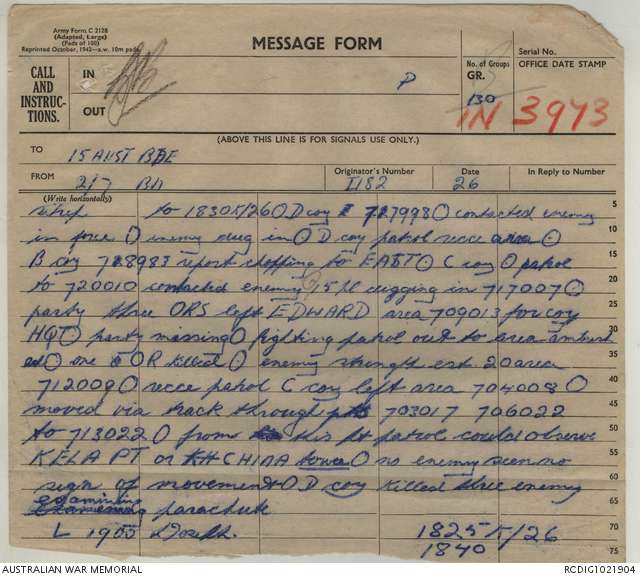 Army Form C 2128
(Adapted, Large)
(Pads of 100)
Reprinted October, 1942—a.w. 10m pads.
MESSAGE FORM
Serial No.
CALL AND INSTRUC-TIONS.
IN
OUT
P
No. of Groups
GR.
130
OFFICE DATE STAMP
IN 3973
(ABOVE THIS LINE IS FOR SIGNALS USE ONLY.)
TO 15 AUST BDE
FROM 2/7 BN
Originator's Number
I182
Date
26
In Reply to Number
(Write horizontally)
sitrep to 1830K/26 O D coy 727998 O contacted enemy 5
in force O enemy dug in O D coy patrol recce area O 10
B coy 728983 report chopping to EAST O C coy O patrol 15
to 720010 contacted enemy 15 pl digging in 717007 O 20
party three ORS left EDWARD area 709013 for coy 25
HQ O party missing O fighting patrol out to area ambush 30
ed O one OR killed O enemy strength est 20 area 35
712009 O recce patrol C coy left area 704008 O 40
moved via track through pts 703017 706022 45
to 713022 O from this pt patrol could observe 50
KELA PT or KHCHIAA O no enemy seen no 55
sign of movement O D coy killed three enemy 60
examining parachute 65
L 1905 1825K/26 70
1840 75
AUSTRALIAN WAR MEMORIAL
RCDIG1021904